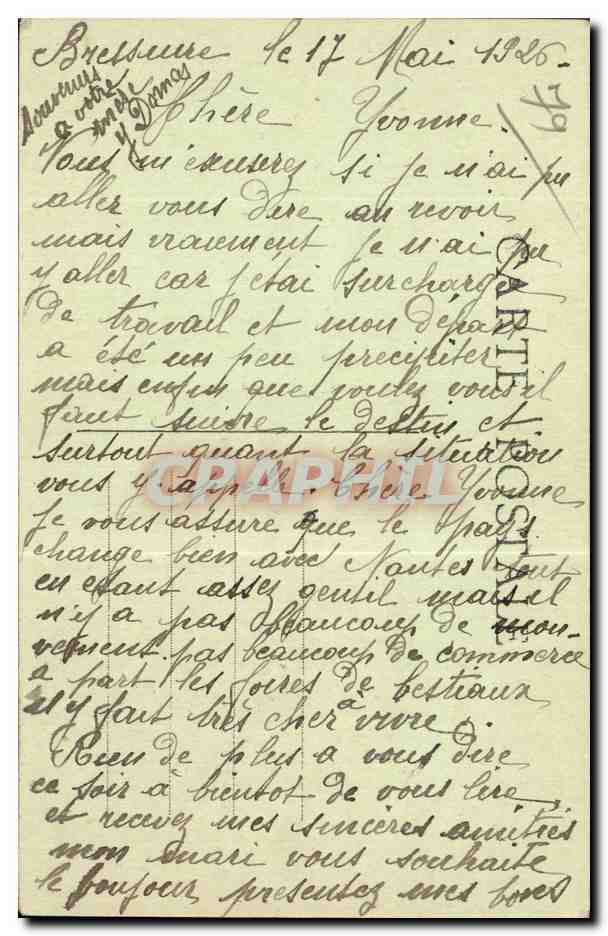 Bressuire le 17 Mai 1926.
79
Chère Yvonne.
Vous m'exuserez si je n'ai pu
aller vous dire au revoir
mais vraiement je n'ai pu
y aller car j'étai surchargé
de travail et mon départ
a été un peu precipiter
mais enfin que voulez vous il
faut suivre le destin et
surtout quant la situation
vous y appelle. Chère Yvonne
je vous assure que le pays
change bien avec Nantes tout
en etant assez gentil mais il
n'y a pas beaucoup de mou-
vement pas beaucoup de commerce
a part les foires de bestiaux
il y fait très cher à vivre.
Rien de plus a vous dire
ce soir à bientot de vous lire,
et recevez mes sincères amitiés
mon mari vous souhaite
le bonjour presentez mes bons
Souvenirs
a votre
mère
y Domas
CARTE POSTALE
CPAPHIL